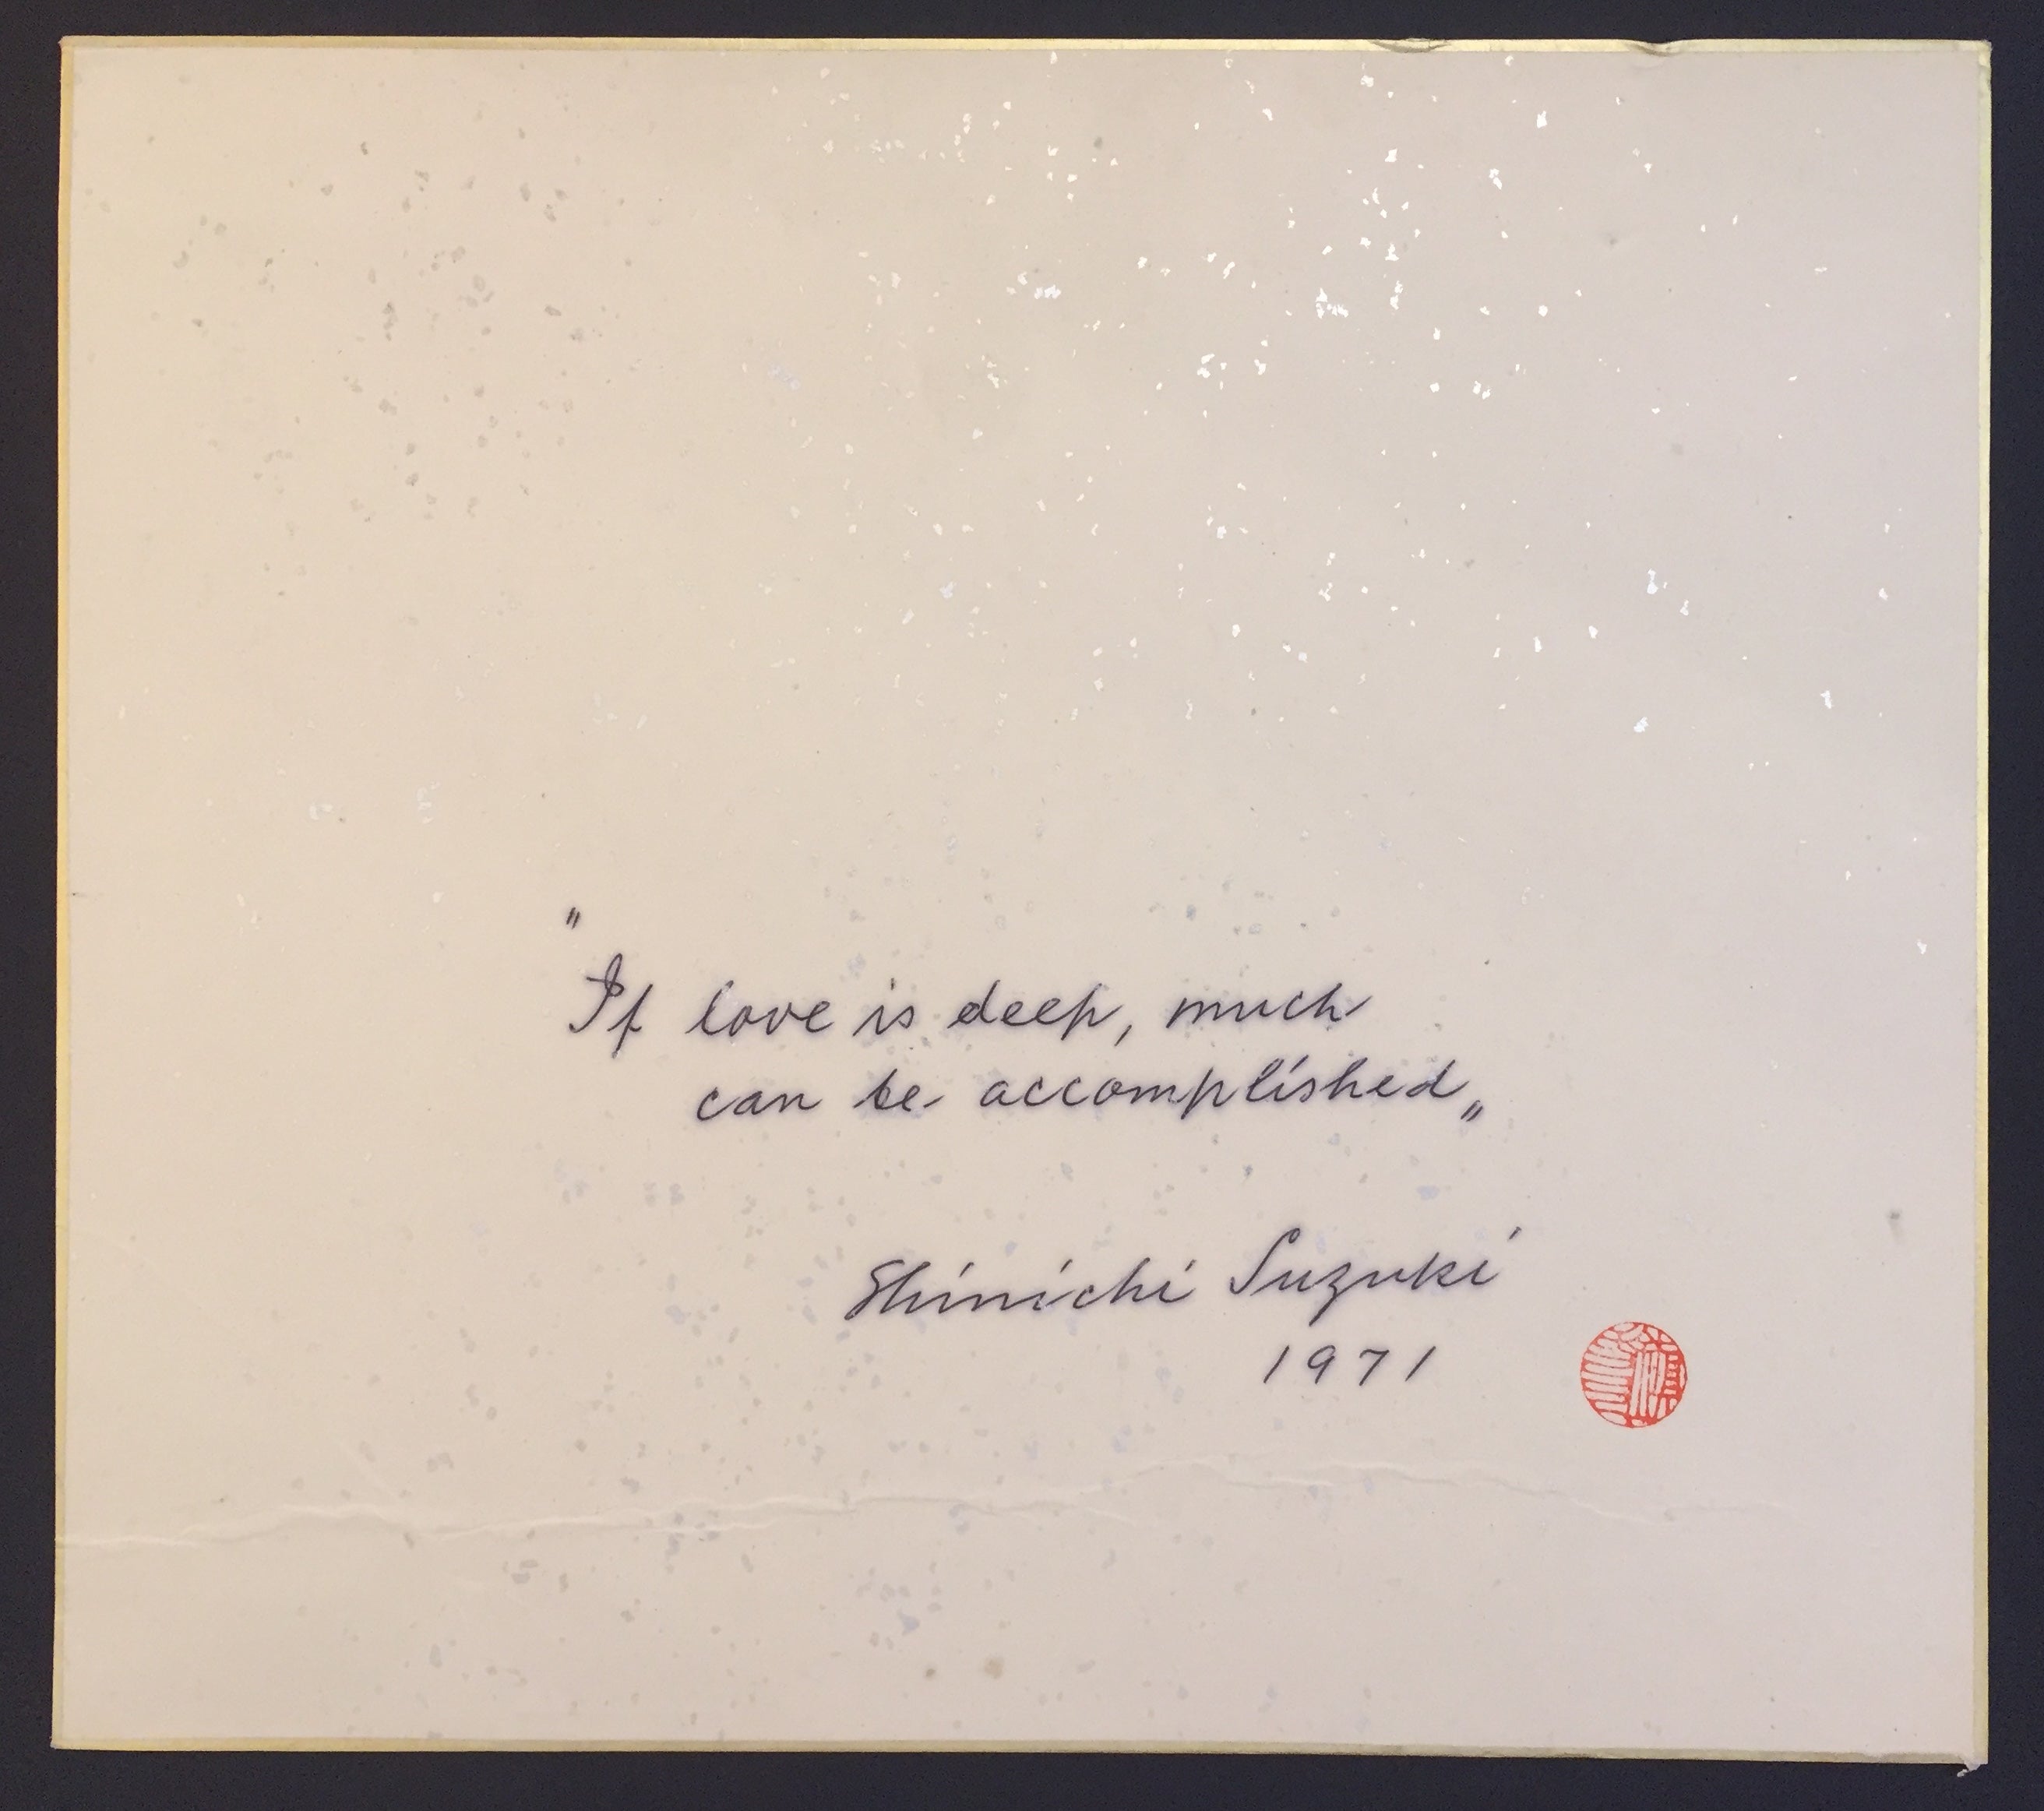 "If love is deep, much
can be accomplished„
Shinichi Suzuki
1971